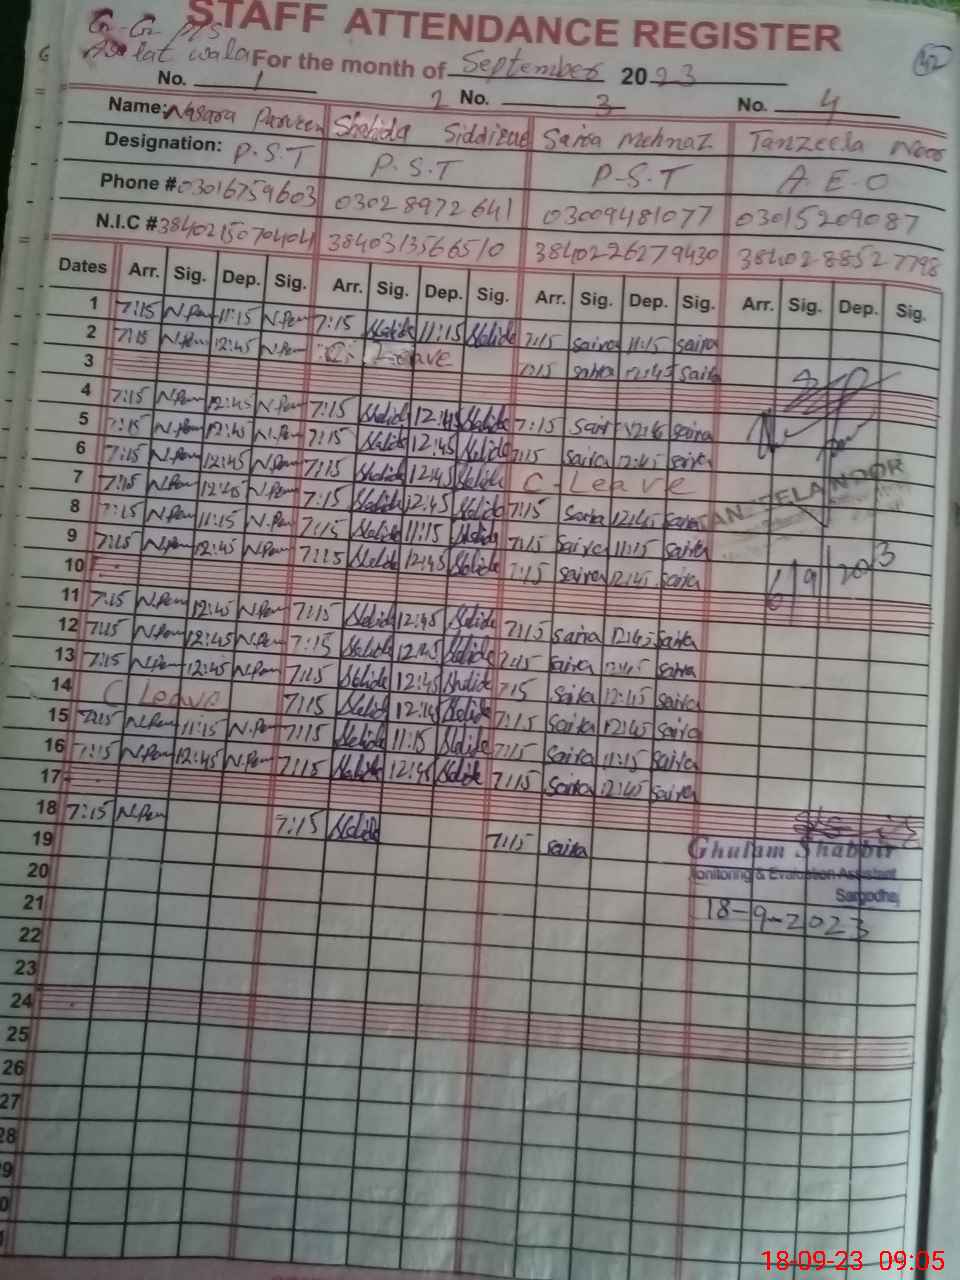 STAFF ATTENDANCE REGISTER
lat wala For the month of September 2023
42
No. 1 2 No. 3 No. 4
Name: Parveen Shahida Saira Mehnaz Tanzeela Noor
Designation: P.S.T P.S.T P-S.T A.E-O
Phone # 03016759603 03028972641 03009481077 03015209087
N.I.C # 3840215070404 3840313566510 3840226279430 3840288527798
Dates Arr. Sig. Dep. Sig. Arr. Sig. Dep. Sig. Arr. Sig. Dep. Sig. Arr. Sig. Dep. Sig.
1 7:15 N.Pem 11:15 N.Pem 7:15 Shahida 11:15 Shahida 7:15 saira 11:15 saira
2 7:15 N.Pem 12:45 N.Pem C. Leave 7:15 saira 12:45 Saira
3
4 7:15 N.Pem 12:45 N.Pem 7:15 Shahida 12:45 Shahida 7:15 Saira 12:45 saira
5 7:15 N.Pem 12:45 N.Pem 7:15 Shahida 12:45 Shahida 7:15 Saira 12:45 saira
6 7:15 N.Pem 12:45 N.Pem 7:15 Shahida 12:45 Shahida C-Leave
7 7:15 N.Pem 12:45 N.Pem 7:15 Shahida 12:45 Shahida 7:15 Saira 12:45 saira TANZEELA NOOR
8 7:15 N.Pem 11:15 N.Pem 7:15 Shahida 11:15 Shahida 7:15 Saira 11:15 saira
9 7:15 N.Pem 12:45 N.Pem 7:15 Shahida 12:45 Shahida 7:15 saira 12:45 saira 6/9/2023
10
11 7:15 N.Pem 12:45 N.Pem 7:15 Shahida 12:45 Shahida 7:15 saira 12:45 saira
12 7:15 N.Pem 12:45 N.Pem 7:15 Shahida 12:45 Shahida 7:15 saira 12:45 saira
13 7:15 N.Pem 12:45 N.Pem 7:15 Shahida 12:45 Shahida 7:15 saira 12:45 saira
14 C Leave 7:15 Shahida 12:45 Shahida 7:15 saira 12:45 saira
15 7:15 N.Pem 11:15 N.Pem 7:15 Shahida 11:15 Shahida 7:15 saira 11:15 saira
16 7:15 N.Pem 12:45 N.Pem 7:15 Shahida 12:45 Shahida 7:15 Saira 12:45 saira
17
18 7:15 N.Pem 7:15 Shahida 7:15 saira
19 Ghulam Shabbir
20 Monitoring & Evaluation Assistant
Sargodha
21 18-9-2023
22
23
24
25
26
27
28
29
18-09-23 09:05